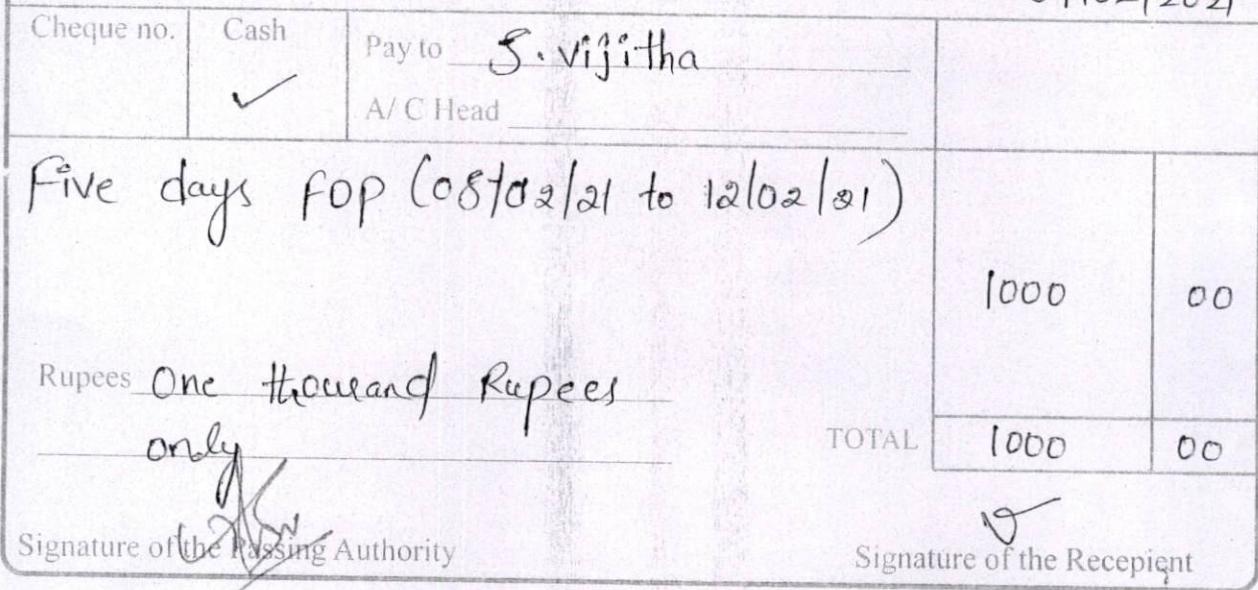 Cheque no. Cash Pay to S. Vijitha
A/ C Head
Five days FDP (08/02/21 to 12/02/21)
1000 00
Rupees One thousand Rupees
only TOTAL 1000 00
Signature of the Passing Authority Signature of the Recepient